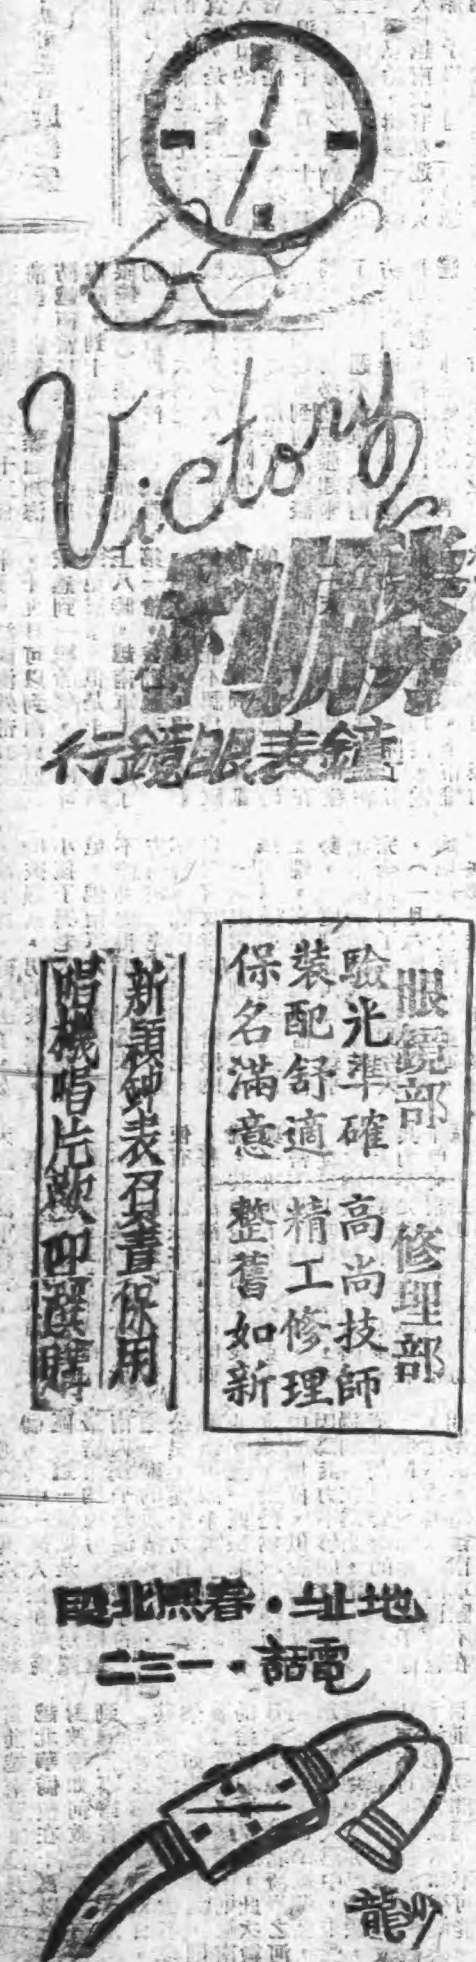 Victory
勝利
鐘表眼鏡行
眼鏡部
驗光準確
裝配舒適
保名滿意
修理部
高尚技師
精工修理
整舊如新
新穎鈡表負責保用
唱機唱片歡迎選購
地址・春熙北段
電話・一三二
沙龍